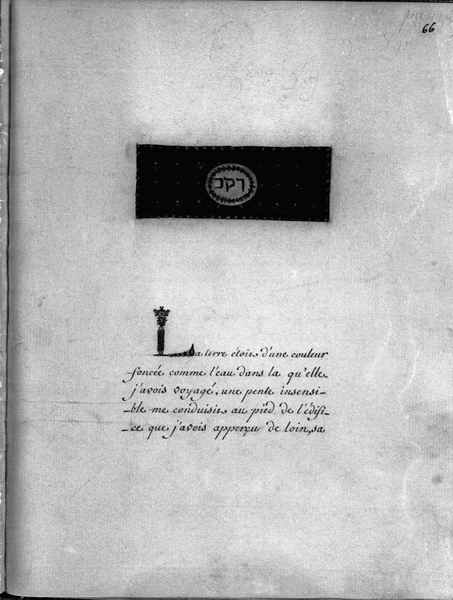 66
La terre étoit d'une couleur
foncée comme l'eau dans la qu'elle
j'avois voyagé, une pente insensi-
-ble me conduisit au pied de l'édifi-
-ce que j'avois apperçu de loin, sa